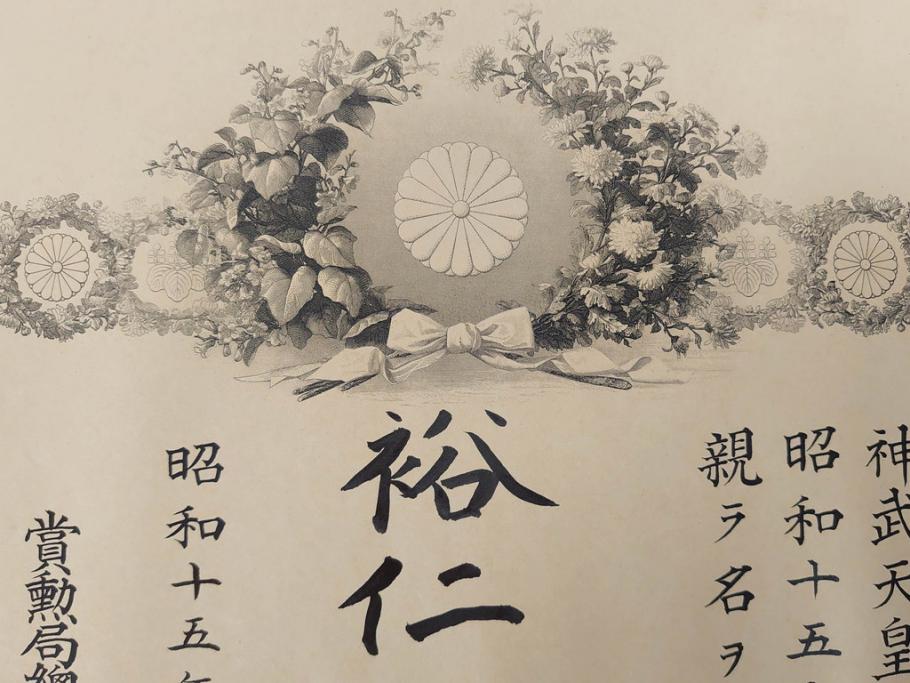 神武天皇
昭和十五
親ラ名ヲ
裕仁
昭和十五年
賞勲局總